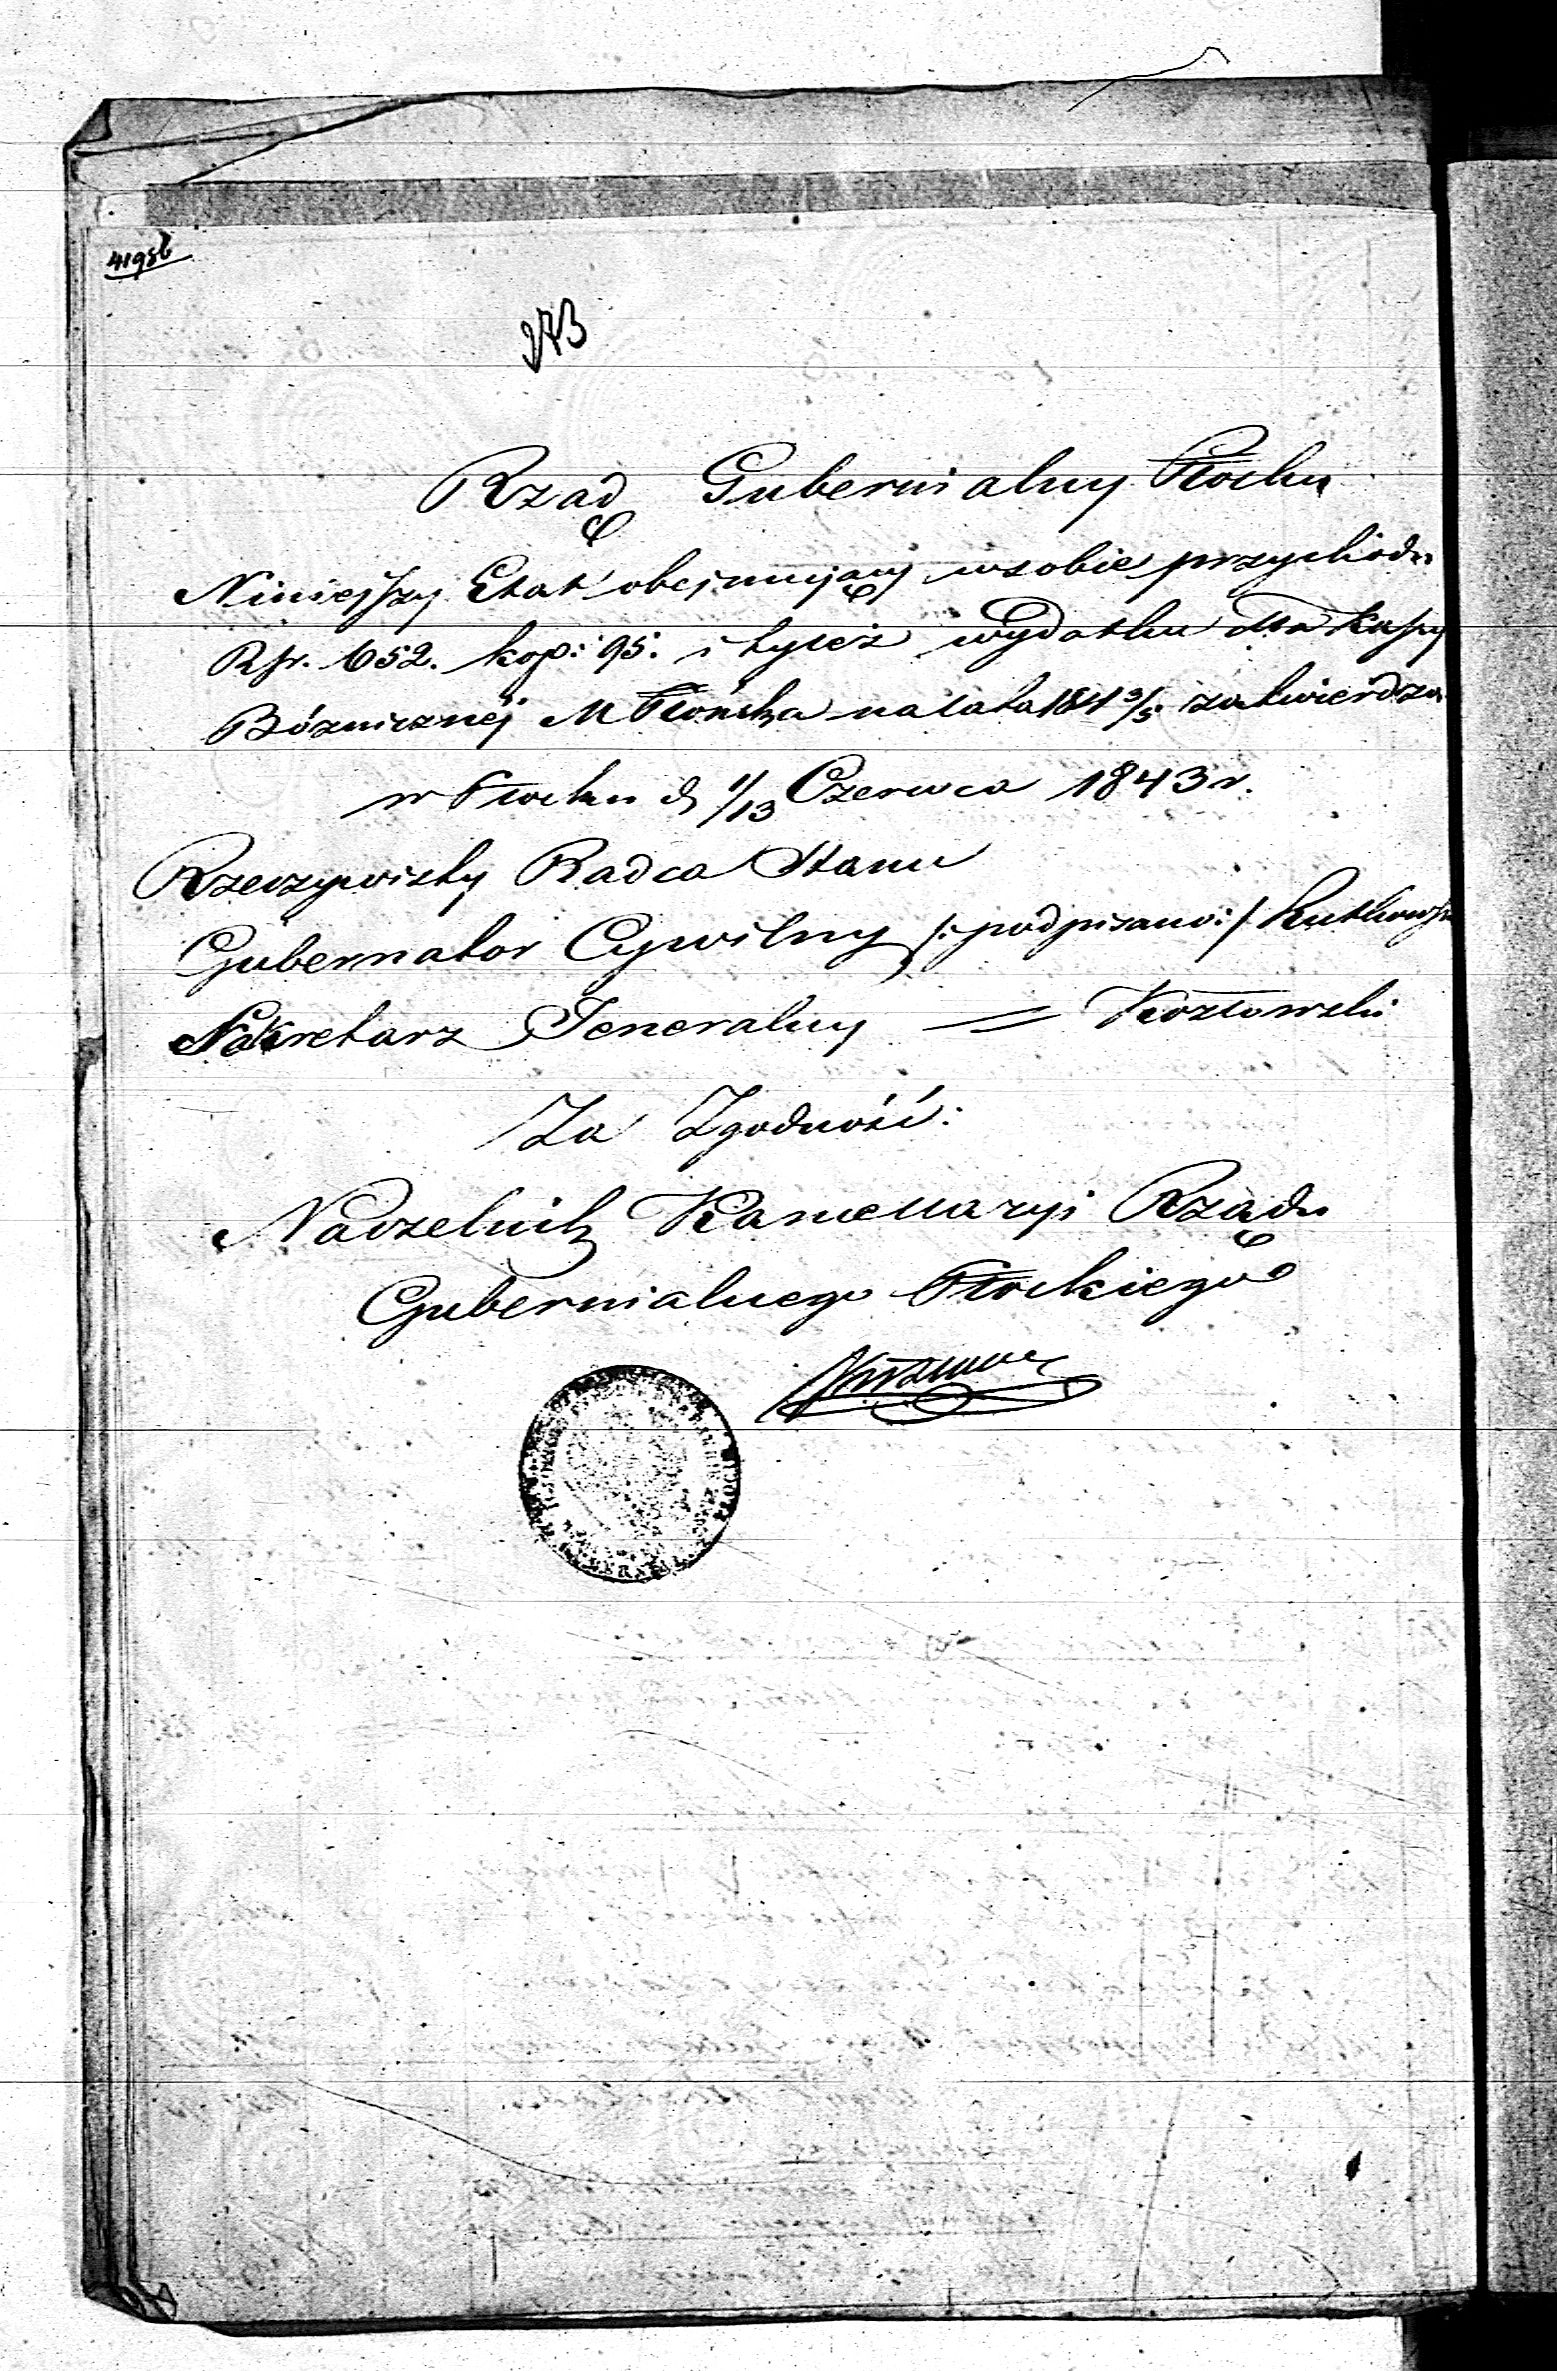 41986
273
Rząd Gubernialny Płocku
Niniejszy Etat obejmujący w sobie przychodu
Rsr. 652. kop: 95. i tyleż wydatku dla Kassy
Bóżnicznéj M Płońska na lata 184 3/5. zatwierdza
w Płocku d 1/13 Czerwca 1843 r.
Rzeczywisty Radca Stanu
Gubernator Cywilny /:podpisano:/
Sekretarz Jeneralny = Kozłowski
Za Zgodność:
Naczelnik Kancellaryi Rządu
Gubernialnego Płockiego